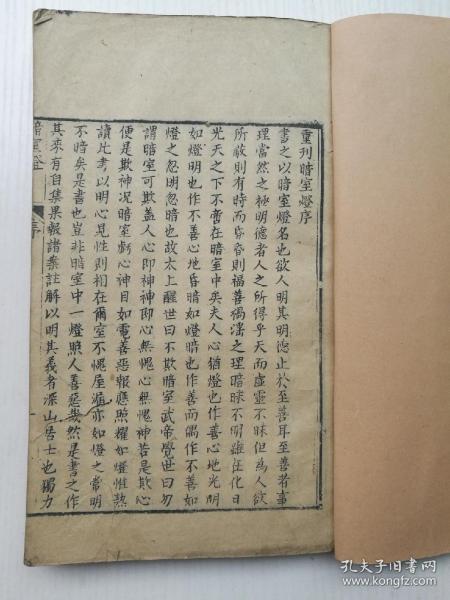 重刊暗室燈序
書之以暗室燈名也欲人明其明德止於至善耳至善者事
理當然之極明德者人之所得乎天而虛靈不昧但為人欲
所蔽則有時而昏昏則福善禍淫之理暗昧不明雖在化日
光天之下不啻在暗室中矣夫人心猶燈也作善心地光明
如燈明也作不善心地昏暗如燈暗也作善而偶作不善如
燈之忽明忽暗也故太上醒世曰不欺暗室武帝覺世曰勿
謂暗室可欺蓋人心即神神即心無愧心無愧神若是欺心
便是欺神况暗室虧心神目如電善惡報應照耀如燈惟熟
讀此書以明心見性則相在爾室不愧屋漏亦如燈之常明
不暗矣是書也豈非暗室中一燈照人善惡幾然是書之作
其來有自集果報諸案註解以明其義者深山居士也獨力
暗室燈
序
孔夫子旧书网
www.kongfz.com